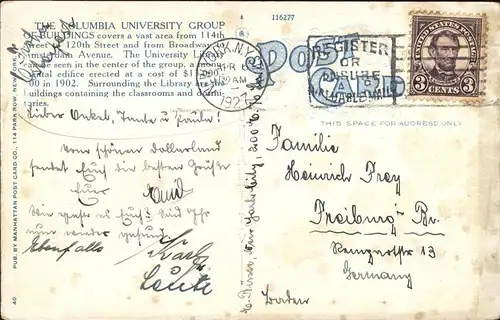 116277
THE COLUMBIA UNIVERSITY GROUP
OF BUILDINGS covers a vast area from 114th
Street to 120th Street and from Broadway to
Amsterdam Avenue. The University Library
can be seen in the center of the group, a monu-
mental edifice erected at a cost of $1,000,
000 in 1902. Surrounding the Library are the
buildings containing the classrooms and dormi-
tories.
POST
CARD
REGISTER
OR
INSURE
VALUABLE MAIL
NEW YORK, N.Y.
1927
UNITED STATES POSTAGE
3 CENTS 3
THIS SPACE FOR ADDRESS ONLY
Lieber Onkel, Tante u.
Vom schönen Dollarland
sendet Euch die besten Grüße
Euer
Emil
Wie geht es Euch? Seid Ihr
nur wieder gesund
Ebenfalls
Karl
Leute
Familie
Heinrich Frey
Freiburg i. Br.
13
Germany
Baden
PUB. BY MANHATTAN POST CARD CO., 114 PARK ROW, NEW YORK
40